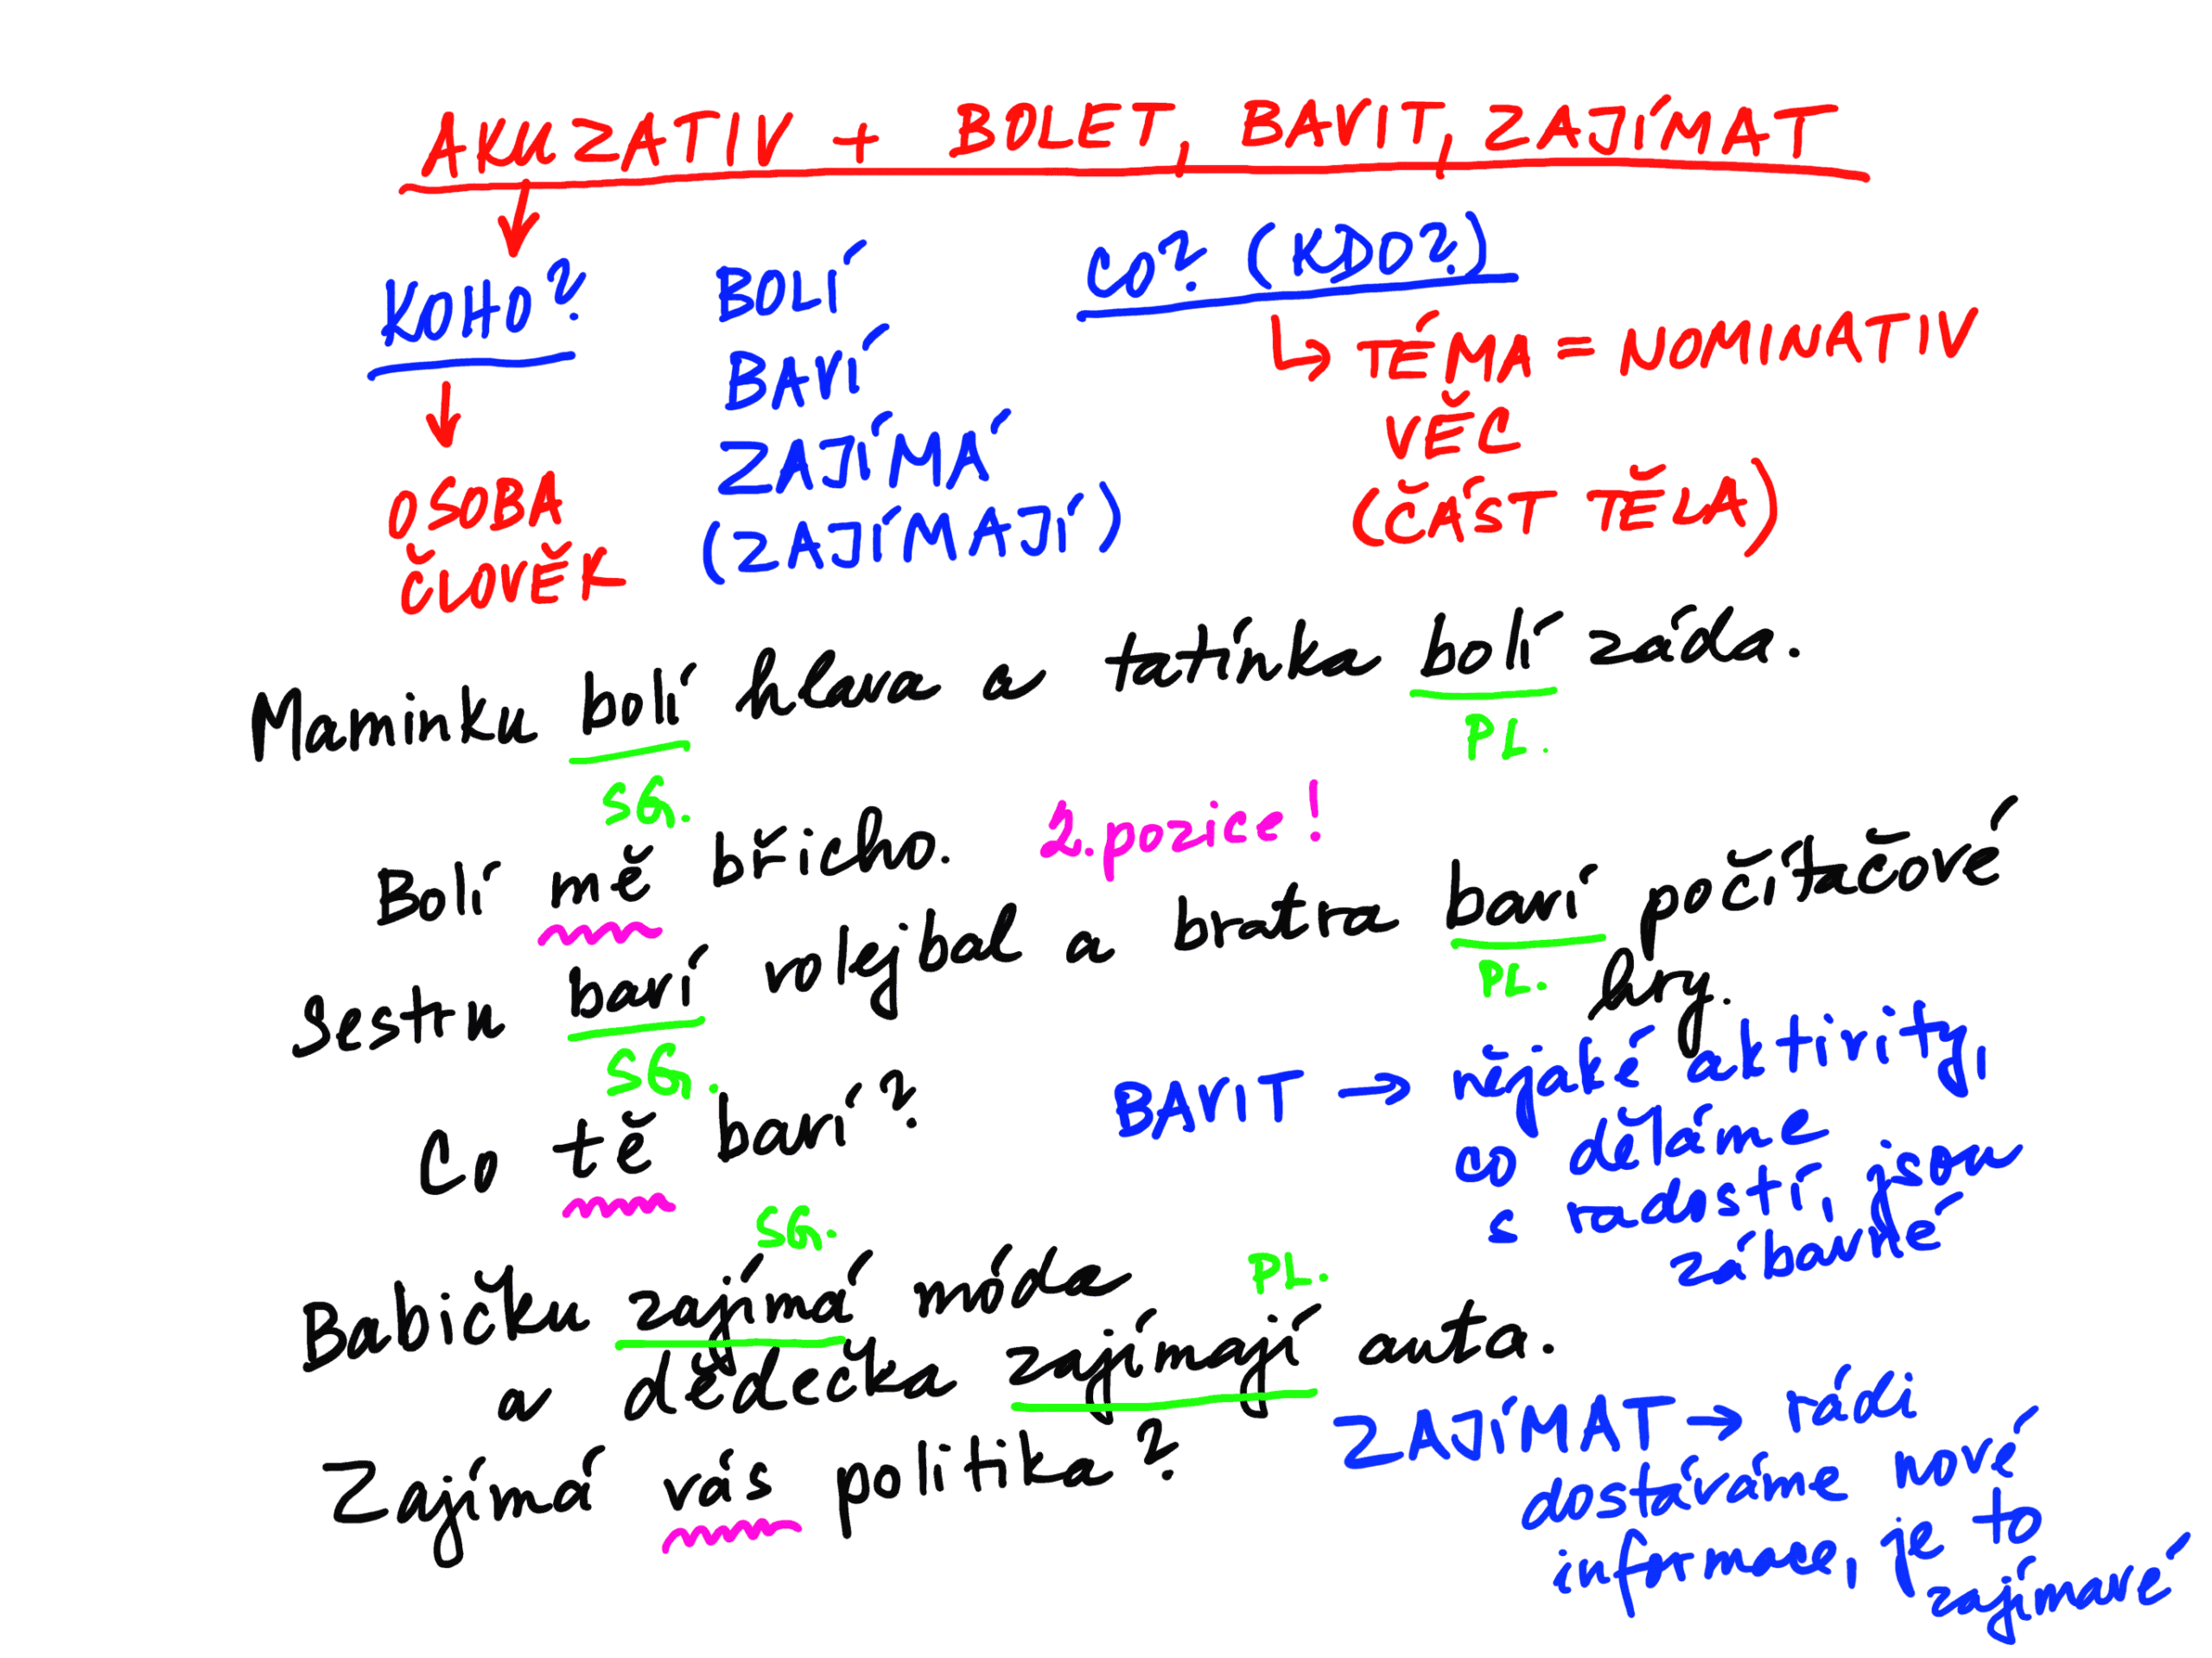 AKUZATIV + BOLET, BAVIT, ZAJÍMAT
KOHO? BOLÍ CO? (KDO?)
BAVÍ ↳ TÉMA = NOMINATIV
ZAJÍMÁ VĚC
OSOBA (ZAJÍMAJÍ) (ČÁST TĚLA)
ČLOVĚK
Maminku bolí hlava a tatínka bolí záda.
SG. PL.
Bolí mě břicho. 2. pozice!
Sestru baví volejbal a bratra baví počítačové
SG. PL. hry.
Co tě baví? BAVIT → nějaké aktivity,
co děláme
s radostí, jsou
zábavné
SG. PL.
Babičku zajímá móda
a dědečka zajímají auta.
Zajímá vás politika? ZAJÍMAT → rádi
dostáváme nové
informace, je to
zajímavé